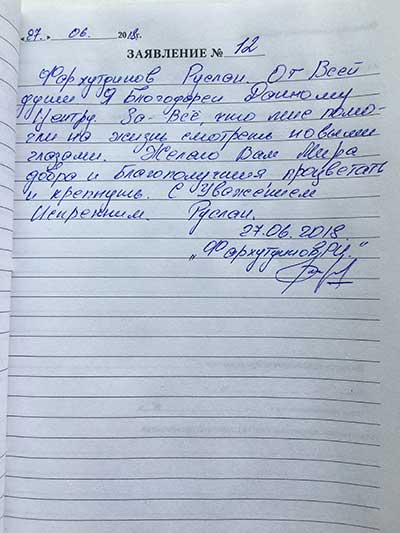 «27.» 06. 2018г.
ЗАЯВЛЕНИЕ № 12
Фархутдинов Руслан. От Всей
души Я Благодарен Данному
Центру. За - Всё, что мне помо-
гли на жизнь смотреть новыми
глазами. Желаю Вам Мира
добра и благополучия процветать
и крепнуть. С Уважением
Искренним. Руслан.
27.06.2018
„Фархутдинов Р.